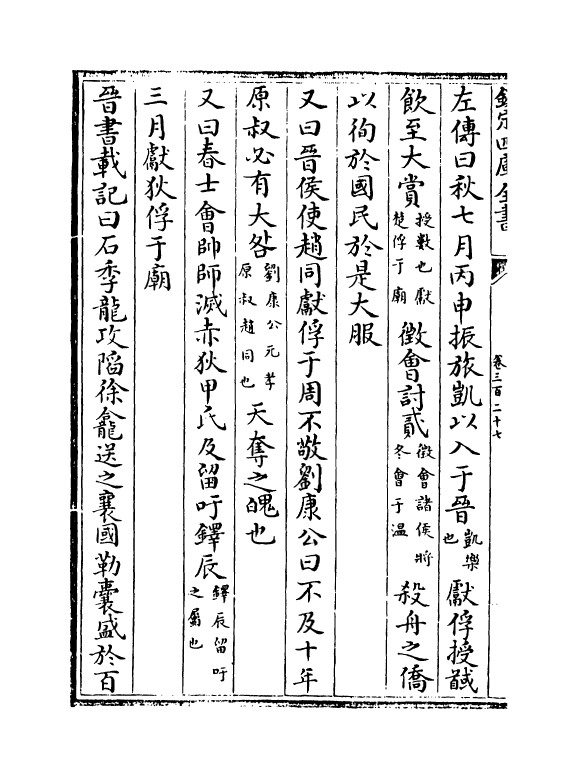 欽定四庫全書
卷三百二十七
左傳曰秋七月丙申振旅凱以入于晉凱樂也獻俘授馘
飲至大賞授數也獻楚俘于廟徵會討貳徵會諸侯將冬會于溫殺舟之僑
以徇於國民於是大服
又曰晉侯使趙同獻俘于周不敬劉康公曰不及十年
原叔必有大咎劉康公元孝原叔趙同也天奪之魄也
又曰春士會帥師滅赤狄甲氏及留吁鐸辰鐸辰留吁之屬也
三月獻狄俘于廟
晉書載記曰石季龍攻陷徐龕送之襄國勒囊盛於百